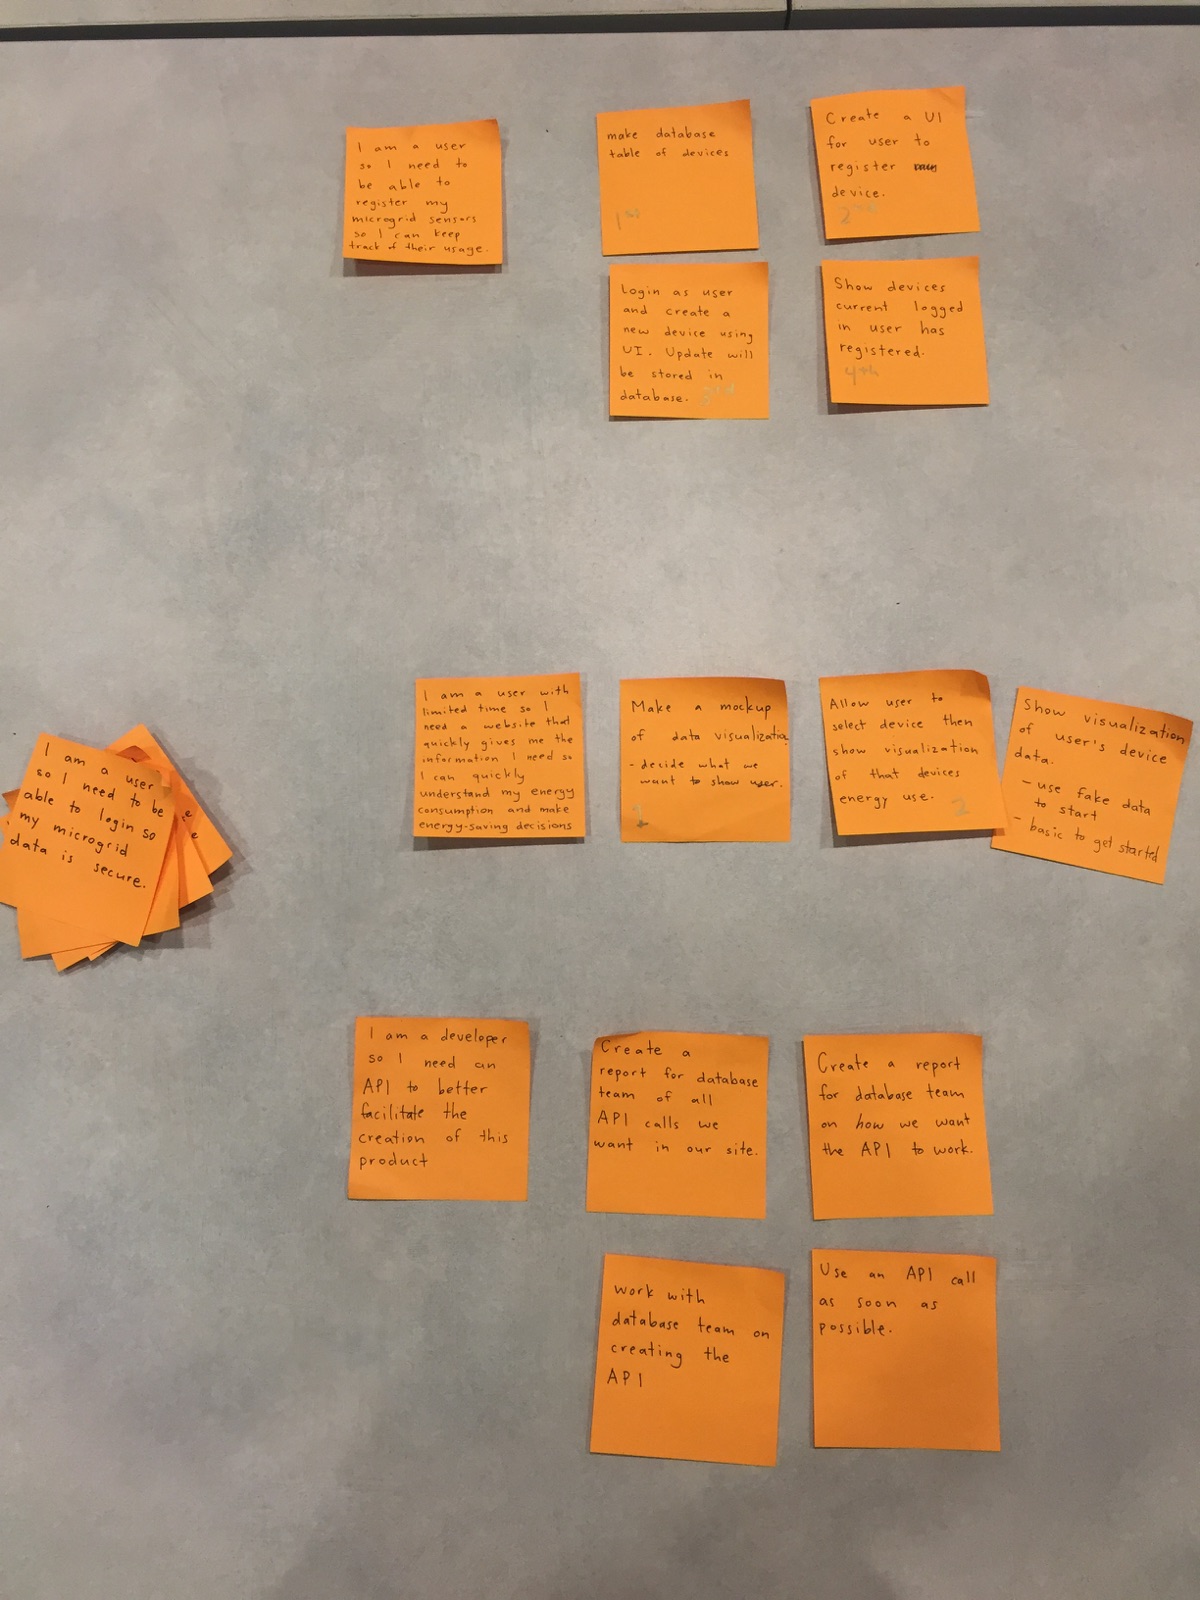 I am a user
so I need to
be able to
register my
microgrid sensors
so I can keep
track of their usage.
make database
table of devices
1st
Create a UI
for user to
register
device.
2nd
Login as user
and create a
new device using
UI. Update will
be stored in
database. 3rd
Show devices
current logged
in user has
registered.
4th
I am a user
so I need to be
able to login so
my microgrid
data is secure.
I am a user with
limited time so I
need a website that
quickly gives me the
information I need so
I can quickly
understand my energy
consumption and make
energy-saving decisions
Make a mockup
of data visualization
- decide what we
want to show user.
Allow user to
select device then
show visualization
of that devices
energy use.
2
Show visualization
of user's device
data.
- use fake data
to start
- basic to get started
I am a developer
so I need an
API to better
facilitate the
creation of this
product
Create a
report for database
team of all
API calls we
want in our site.
Create a report
for database team
on how we want
the API to work.
work with
database team on
creating the
API
Use an API call
as soon as
possible.